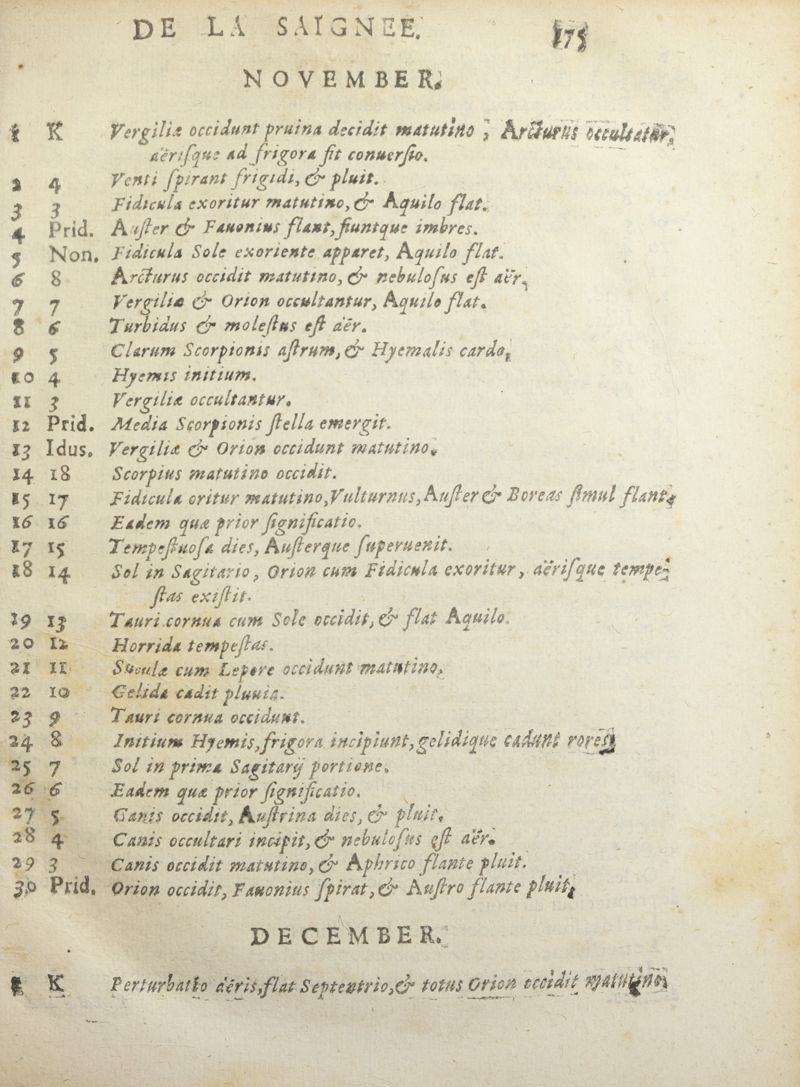 DE LA SAIGNEE. 175
NOVEMBER.
1 K Vergiliæ occidunt pruina decidit matutino, Arcturus occultatur,
aërisque ad frigora fit conuersio.
2 4 Venti spirant frigidi, & pluit.
3 3 Fidicula exoritur matutino, & Aquilo flat.
4 Prid. Auster & Fauonius flant, fiuntque imbres.
5 Non. Fidicula Sole exoriente apparet, Aquilo flat.
6 8 Arcturus occidit matutino, & nebulosus est aër.
7 7 Vergiliæ & Orion occultantur, Aquilo flat.
8 6 Turbidus & molestus est aër.
9 5 Clarum Scorpionis astrum, & Hyemalis cardo,
10 4 Hyemis initium.
11 3 Vergiliæ occultantur.
12 Prid. Media Scorpionis stella emergit.
13 Idus. Vergiliæ & Orion occidunt matutino.
14 18 Scorpius matutino occidit.
15 17 Fidicula oritur matutino, Vulturnus, Auster & Boreas simul flant.
16 16 Eadem quæ prior significatio.
17 15 Tempestuosa dies, Austerque superuenit.
18 14 Sol in Sagitario, Orion cum Fidicula exoritur, aërisque tempe-
stas existit.
19 13 Tauri cornua cum Sole occidit, & flat Aquilo.
20 12 Horrida tempestas.
21 11 Suculæ cum Lepore occidunt matutino.
22 10 Gelida cadit pluuia.
23 9 Tauri cornua occidunt.
24 8 Initium Hyemis, frigora incipiunt, gelidique cadunt rores.
25 7 Sol in prima Sagitarij portione.
26 6 Eadem quæ prior significatio.
27 5 Canis occidit, Austrina dies, & pluit.
28 4 Canis occultari incipit, & nebulosus est aër.
29 3 Canis occidit matutino, & Aphrico flante pluit.
30 Prid. Orion occidit, Fauonius spirat, & Austro flante pluit.
DECEMBER.
1 K Perturbatio aëris, flat Septentrio, & totus Orion occidit matutino.